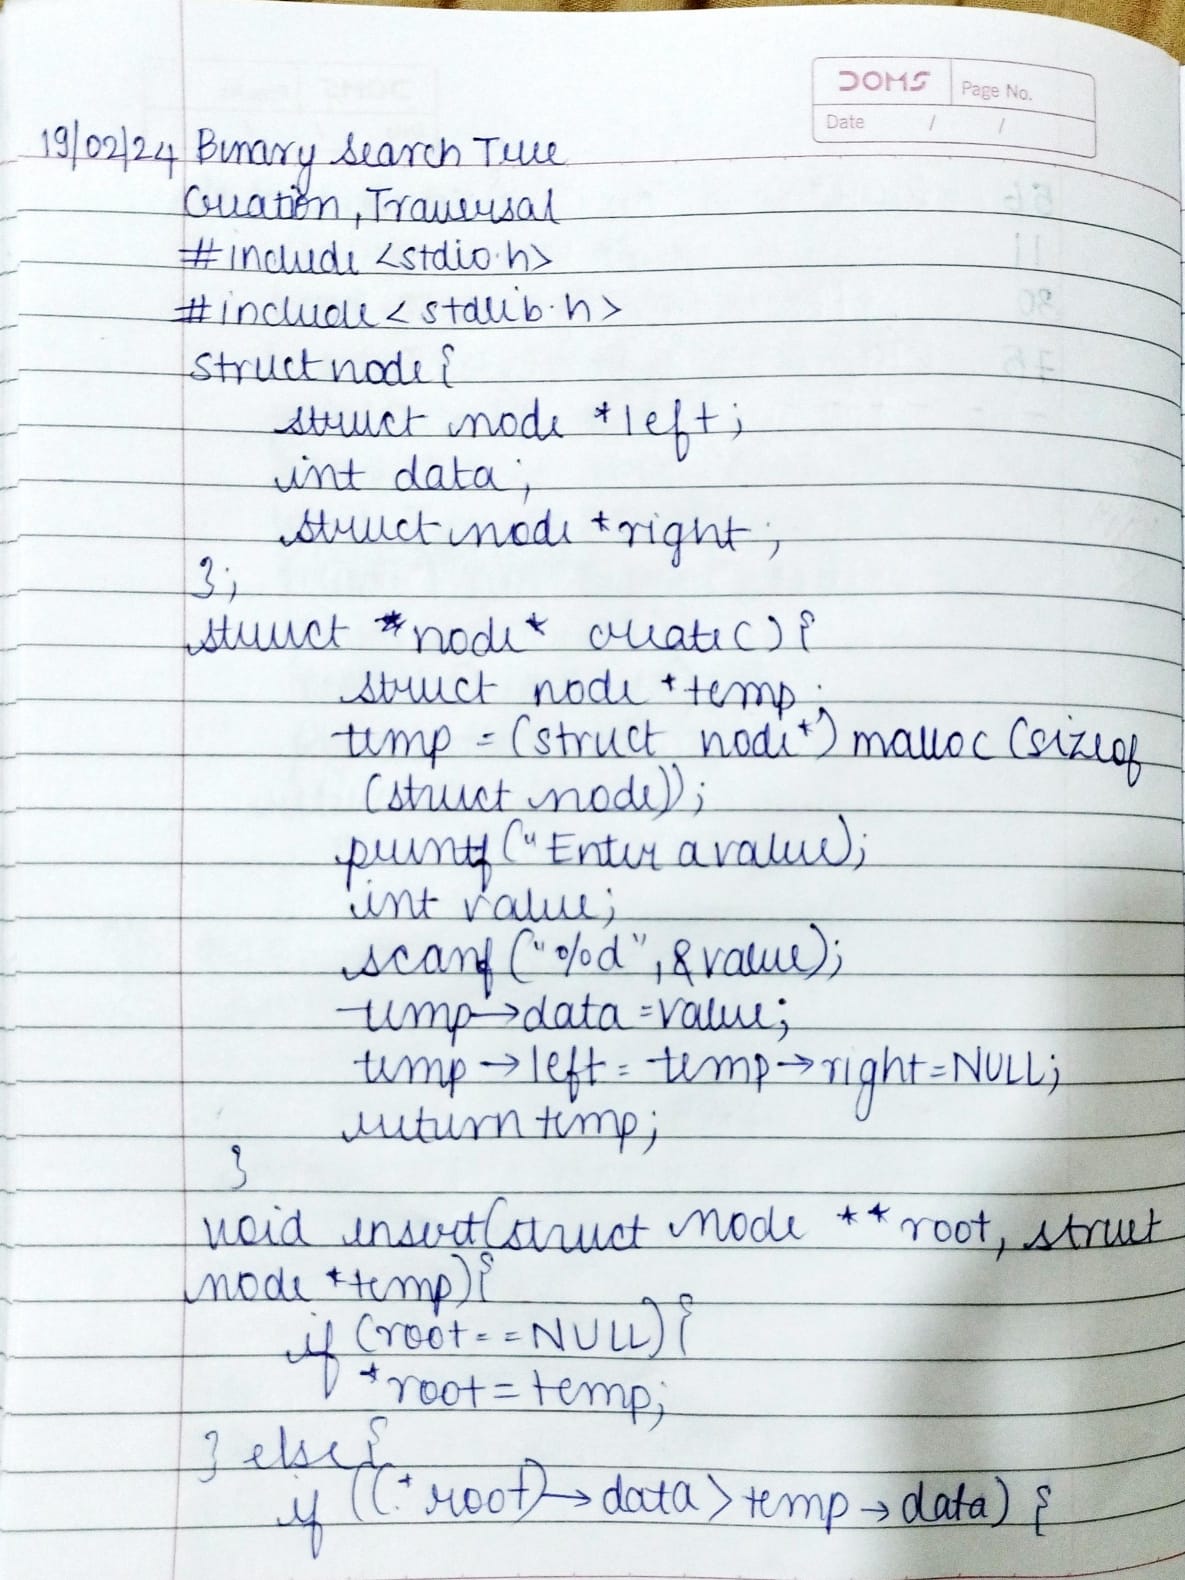 DOMS
Page No.
Date / /
19/02/24 Binary Search Tree
Creation, Traversal
#include <stdio.h>
#include <stdlib.h>
struct node {
struct node *left;
int data;
struct node *right;
};
struct node* create() {
struct node *temp;
temp = (struct node*) malloc (sizeof
(struct node));
printf ("Enter a value);
int value;
scanf ("%d", &value);
temp→data = value;
temp→left = temp→right = NULL;
return temp;
}
void insert(struct node **root, struct
node *temp) {
if (root == NULL) {
*root = temp;
} else {
if ((*root)→data > temp→data) {